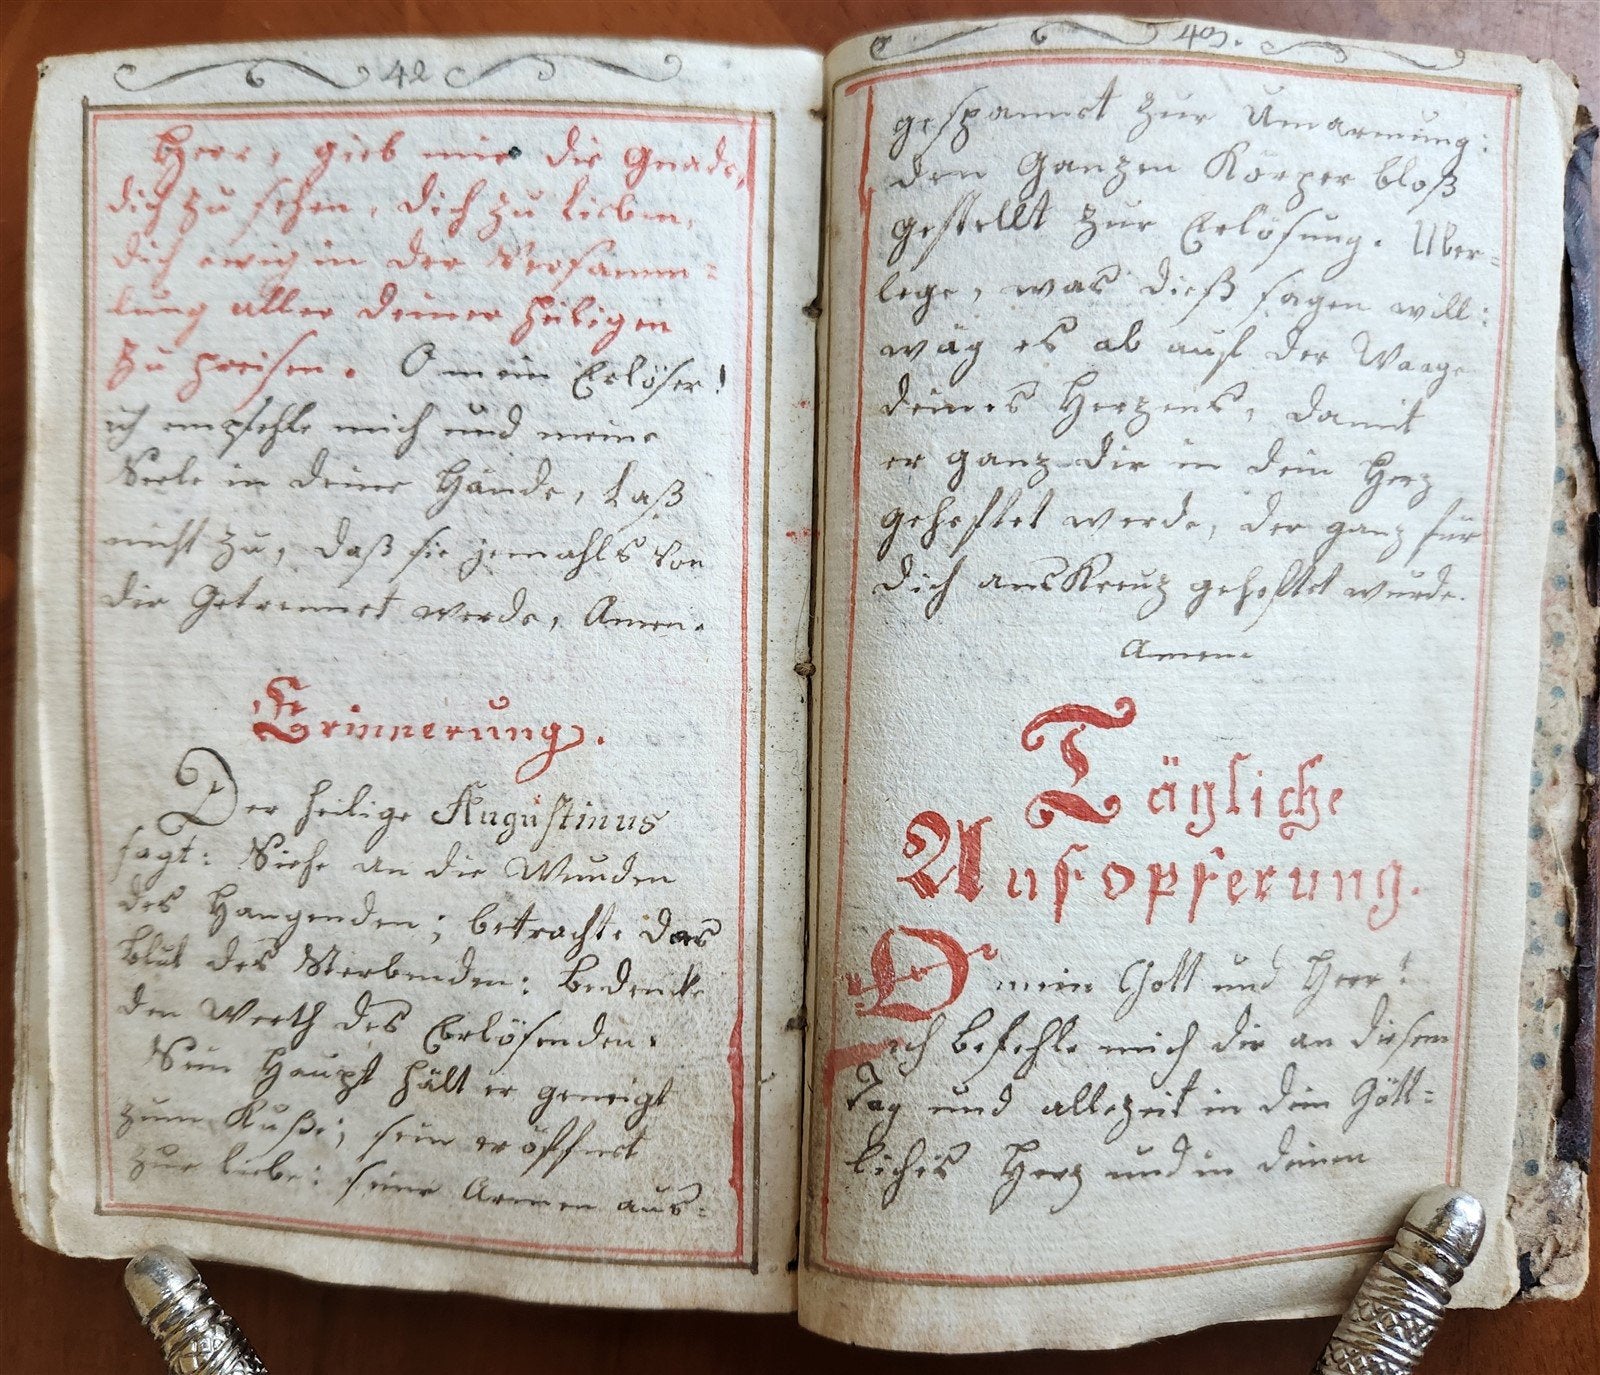 42
Herr, gieb mir die Gnade,
dich zu sehen, dich zu lieben,
dich ewig in der Versamm=
lung aller deiner heiligen
zu preisen. O mein Erlöser!
ich empfehle mich und meine
Seele in deine Hände, laß
nicht zu, daß sie jemahls von
dir Getrennet werde, Amen.
Erinnerung.
Der heilige Augustinus
sagt: Siehe an die Wunden
des Hangenden; betrachte das
blut des Sterbenden: bedencke
den Werth des Erlösenden.
Sein Haupt hält er geneigt
zum Kuße; sein eröffnet
zur liebe: seine Armen aus=
43.
gespannet zur Umarmung:
den Ganzen Körper bloß
gestellt zur Erlösung. Uber=
lege, was dieß sagen will:
wäg es ab auf der Waage
deines Herzens, damit
er ganz dir in dein Herz
geheftet werde, der ganz für
dich ans Kreuz geheftet wurde.
Amen
Tägliche
Aufopferung.
O mein Gott und Herr!
ich befehle mich dir an diesem
Tag und allezeit in dein Gött=
liches Herz und in deinen